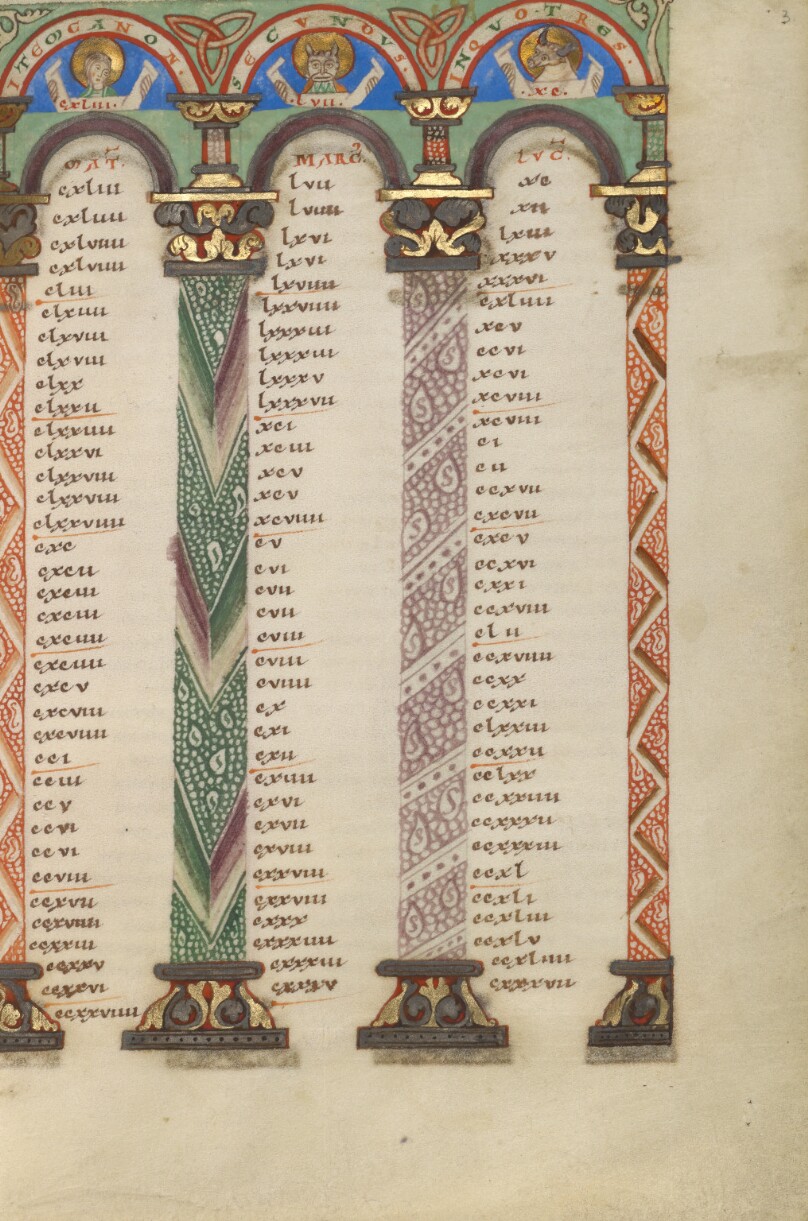 3
TEM CANON.
SECVNDVS
INQVOTRES.
cxliii.
.lvii.
.xc.
MAT̄.
cxliii
cxliiii
cxlviiii
cxlviiii
cliii
clxiiii
clxviii
clxviii
clxx
clxxii
clxxiiii
clxxvi
clxxviii
clxxviii
clxxviiii
cxc
cxcii
cxciii
cxciii
cxciiii
cxciiii
cxcv
cxcviii
cxcviiii
cci
cciii
ccv
ccvi
ccvi
ccviii
ccxvii
ccxviiii
ccxxiii
ccxxv
ccxxvi
ccxxviiii
MARC̄.
lvii
lviiii
lxvi
lxvi
lxviiii
lxxviiii
lxxxiii
lxxxiii
lxxxv
lxxxvii
xci
xciii
xcv
xcv
xcviiii
cv
cvi
cvii
cvii
cviii
cviii
cviiii
cx
cxi
cxii
cxiiii
cxvi
cxvii
cxviii
cxxviii
cxxviii
cxxx
cxxxiiii
cxxxiii
cxxxv
LVC̄.
xc
xii
lxiii
xxxv
xxxvi
cxliiii
xcv
ccvi
xcvi
xcviii
xcviii
ci
cii
ccxvii
cxcvii
cxcv
ccxvi
cxxi
ccxviii
clii
ccxviiii
ccxx
ccxxi
clxxiii
ccxxii
cclxx
ccxxiiii
ccxxxii
ccxxxiii
ccxl
ccxli
ccxliii
ccxlv
ccxliiii
cxxxvii